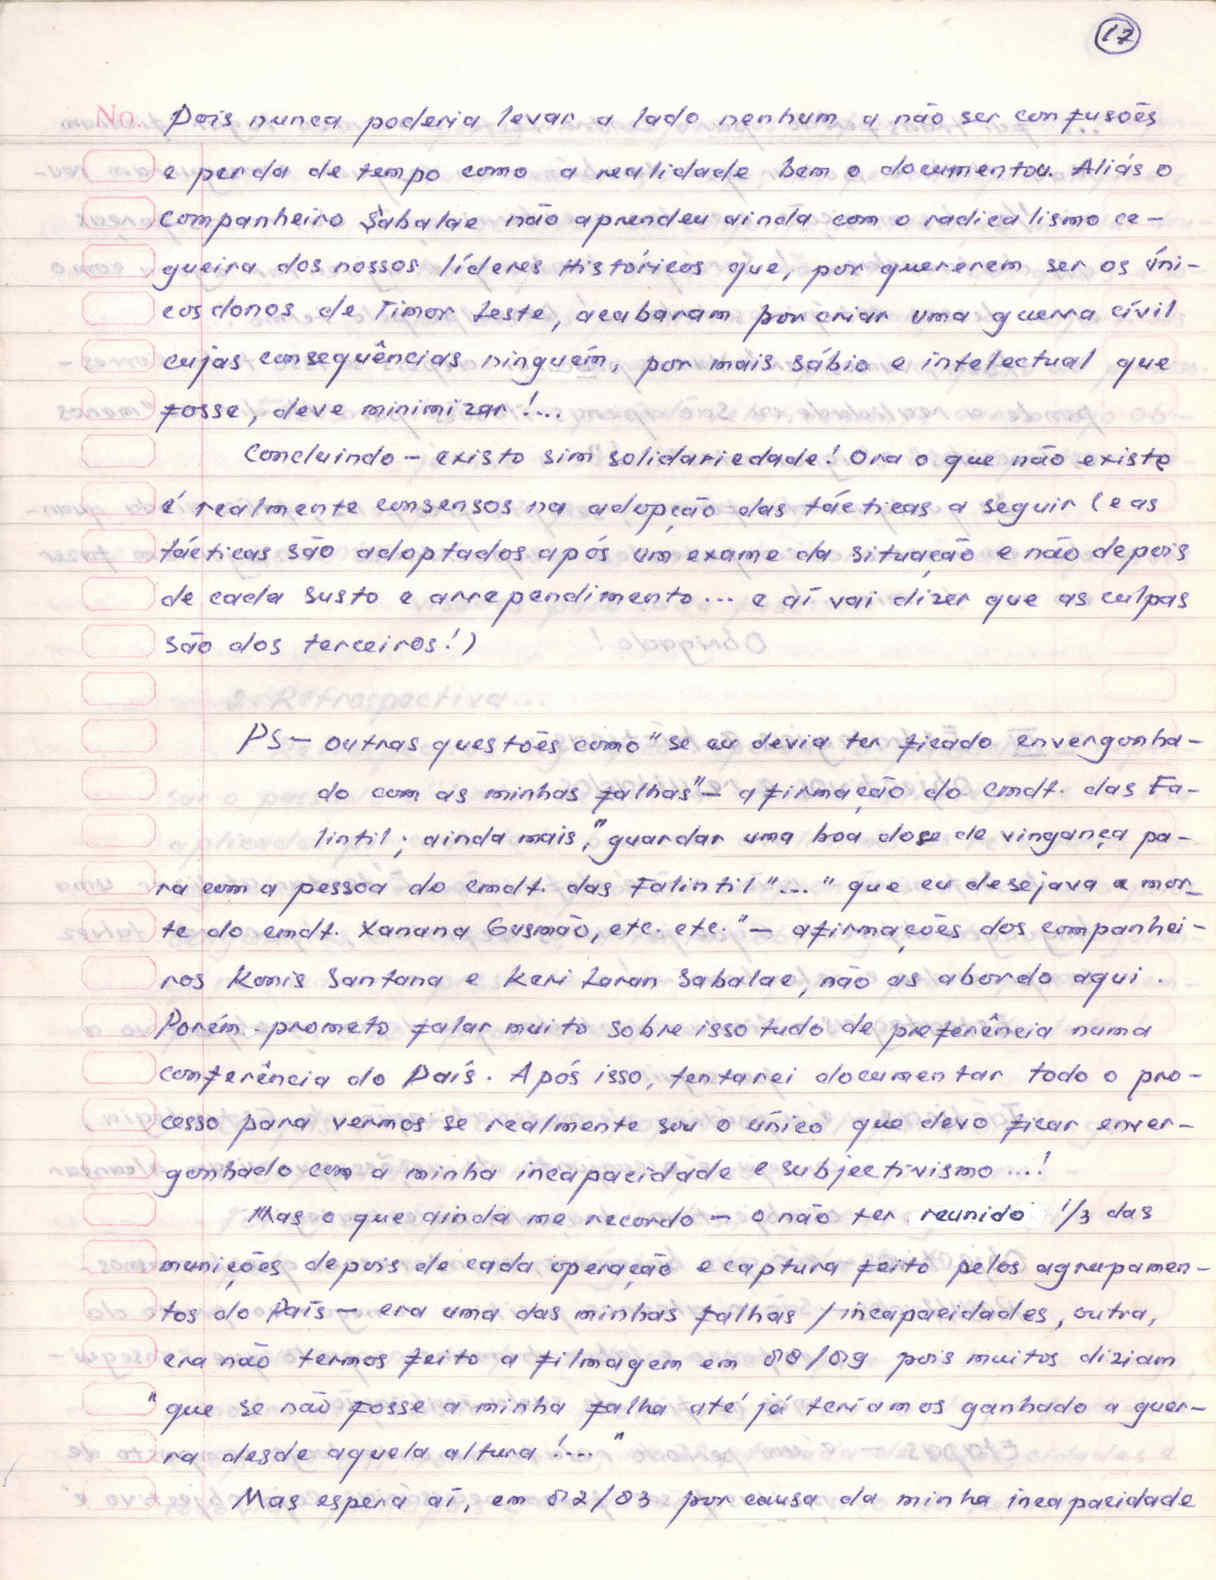 17
No. Pois nunca poderia levar a lado nenhum a não ser confusões
e perda de tempo como a realidade bem o documentou. Aliás o
companheiro Sabalae não aprendeu ainda com o radicalismo ce-
gueira dos nossos líderes Históricos que, por quererem ser os úni-
cos donos de Timor Leste, acabaram por criar uma guerra cívil
cujas consequências ninguém, por mais sábio e intelectual que
fosse, deve minimizar!...
Concluindo - existo sim solidariedade! Ora o que não existe
é realmente consensos na adopção das tácticas a seguir (e as
tácticas são adoptados após um exame da situação e não depois
de cada susto e arrependimento... e aí vai dizer que as culpas
são dos terceiros!)
2. Retrospectiva...
PS - outras questões como "se eu devia ter ficado envergonha-
do com as minhas falhas" - afirmação do cmdt. das Fa-
lintil; ainda mais, "guardar uma boa dose de vingança pa-
ra com a pessoa do cmdt. das Falintil"... "que eu desejava a mor-
te do cmdt. Xanana Gusmão, etc. etc." - afirmações dos companhei-
ros Konis Santana e Keri Laran Sabalae, não as abordo aqui.
Porém. prometo falar muito sobre isso tudo de preferência numa
conferência do País. Após isso, tentarei documentar todo o pro-
cesso para vermos se realmente sou o único que devo ficar enver-
gonhado com a minha incapacidade e subjectivismo...!
Mas o que ainda me recordo - o não ter reunido 1/3 das
munições depois de cada operação e captura feito pelos agrupamen-
tos do País - era uma das minhas falhas / incapacidades, outra,
era não termos feito a filmagem em 88/89 pois muitos diziam
"que se não fosse a minha falha até já teríamos ganhado a guer-
ra desde aquela altura!..."
Mas espera aí, em 82/83 por causa da minha incapacidade